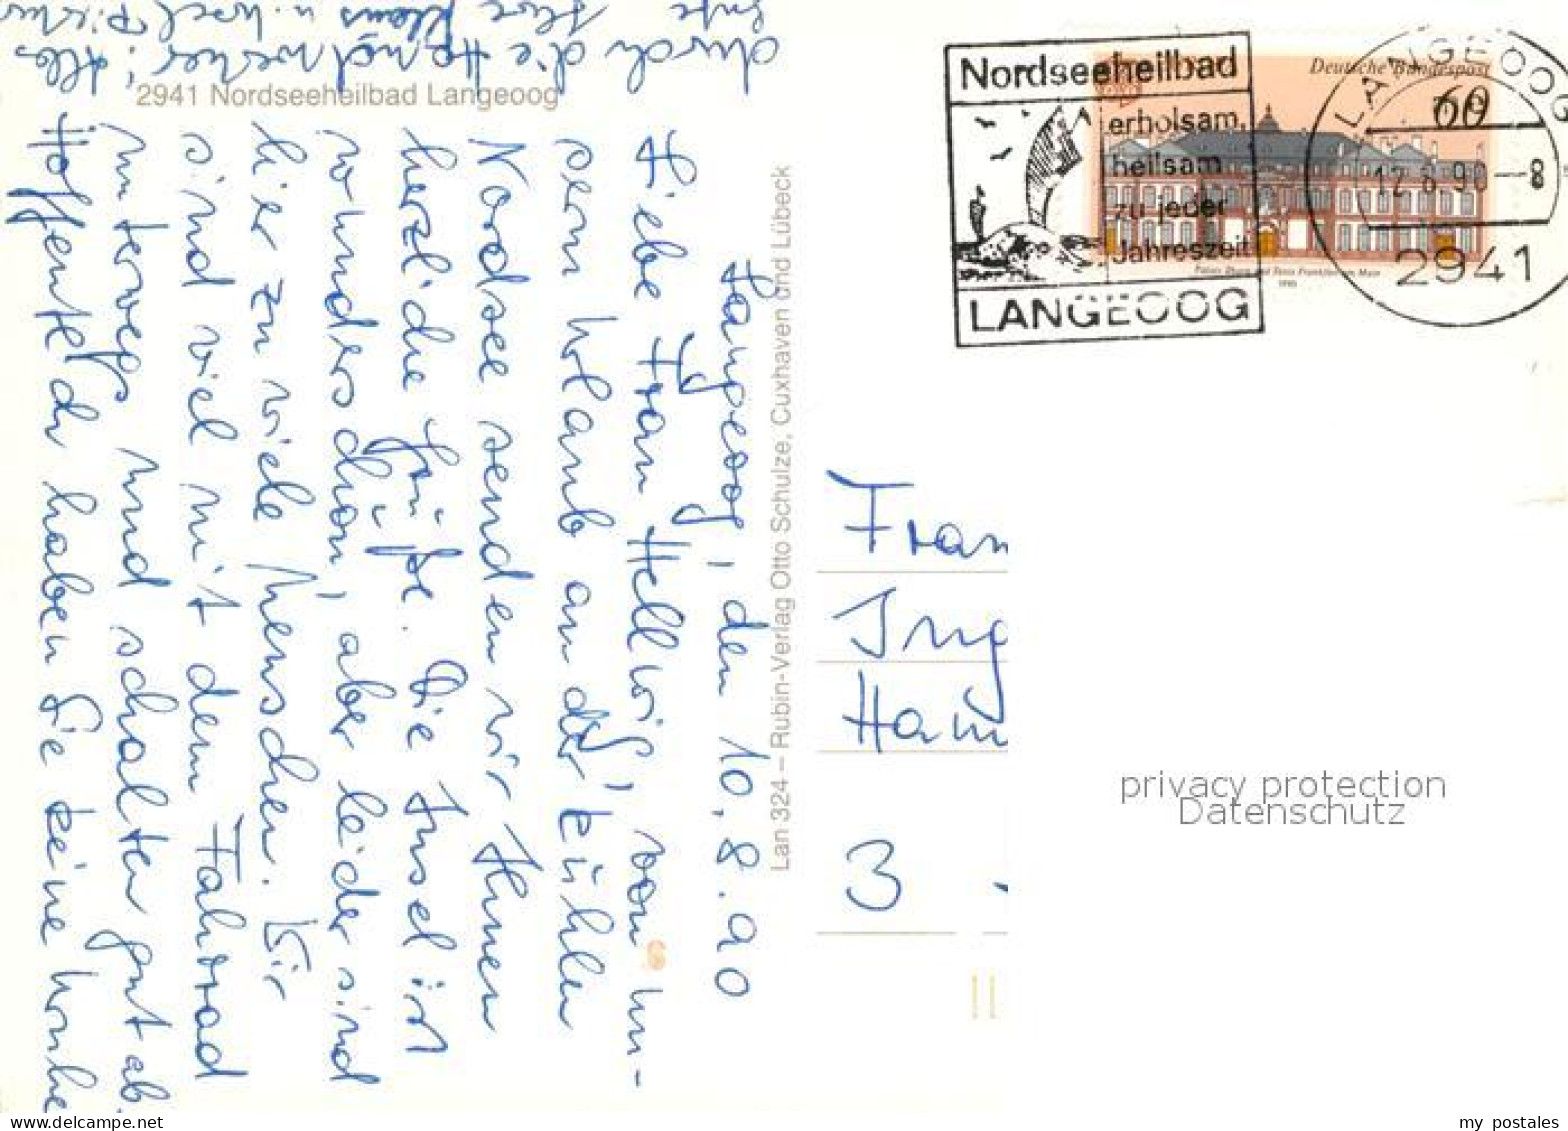 2941 Nordseeheilbad Langeoog
Langeoog, den 10.8.90
Liebe Frau Hellwig, von un-
serm Urlaub an der kühlen
Nordsee senden wir Ihnen
herzliche Grüße. Die Insel ist
wunderschön, aber leider sind
hier zu viele Menschen. Wir
sind viel mit dem Fahrrad
unterwegs und schalten gut ab.
Hoffentlich haben Sie keine Unruhe
durch die Handwerker! Alles
Gute Ihre Klaus u.
Lan 324 – Rubin-Verlag Otto Schulze, Cuxhaven und Lübeck
Nordseeheilbad
erholsam,
heilsam
zu jeder
Jahreszeit
LANGEOOG
Deutsche Bundespost
60
Palais Thurn und Taxis Frankfurt am Main
1990
LANGEOOG
12.8.90-8
2941
Frau
Ing
Ham
3
privacy protection
Datenschutz
my postales